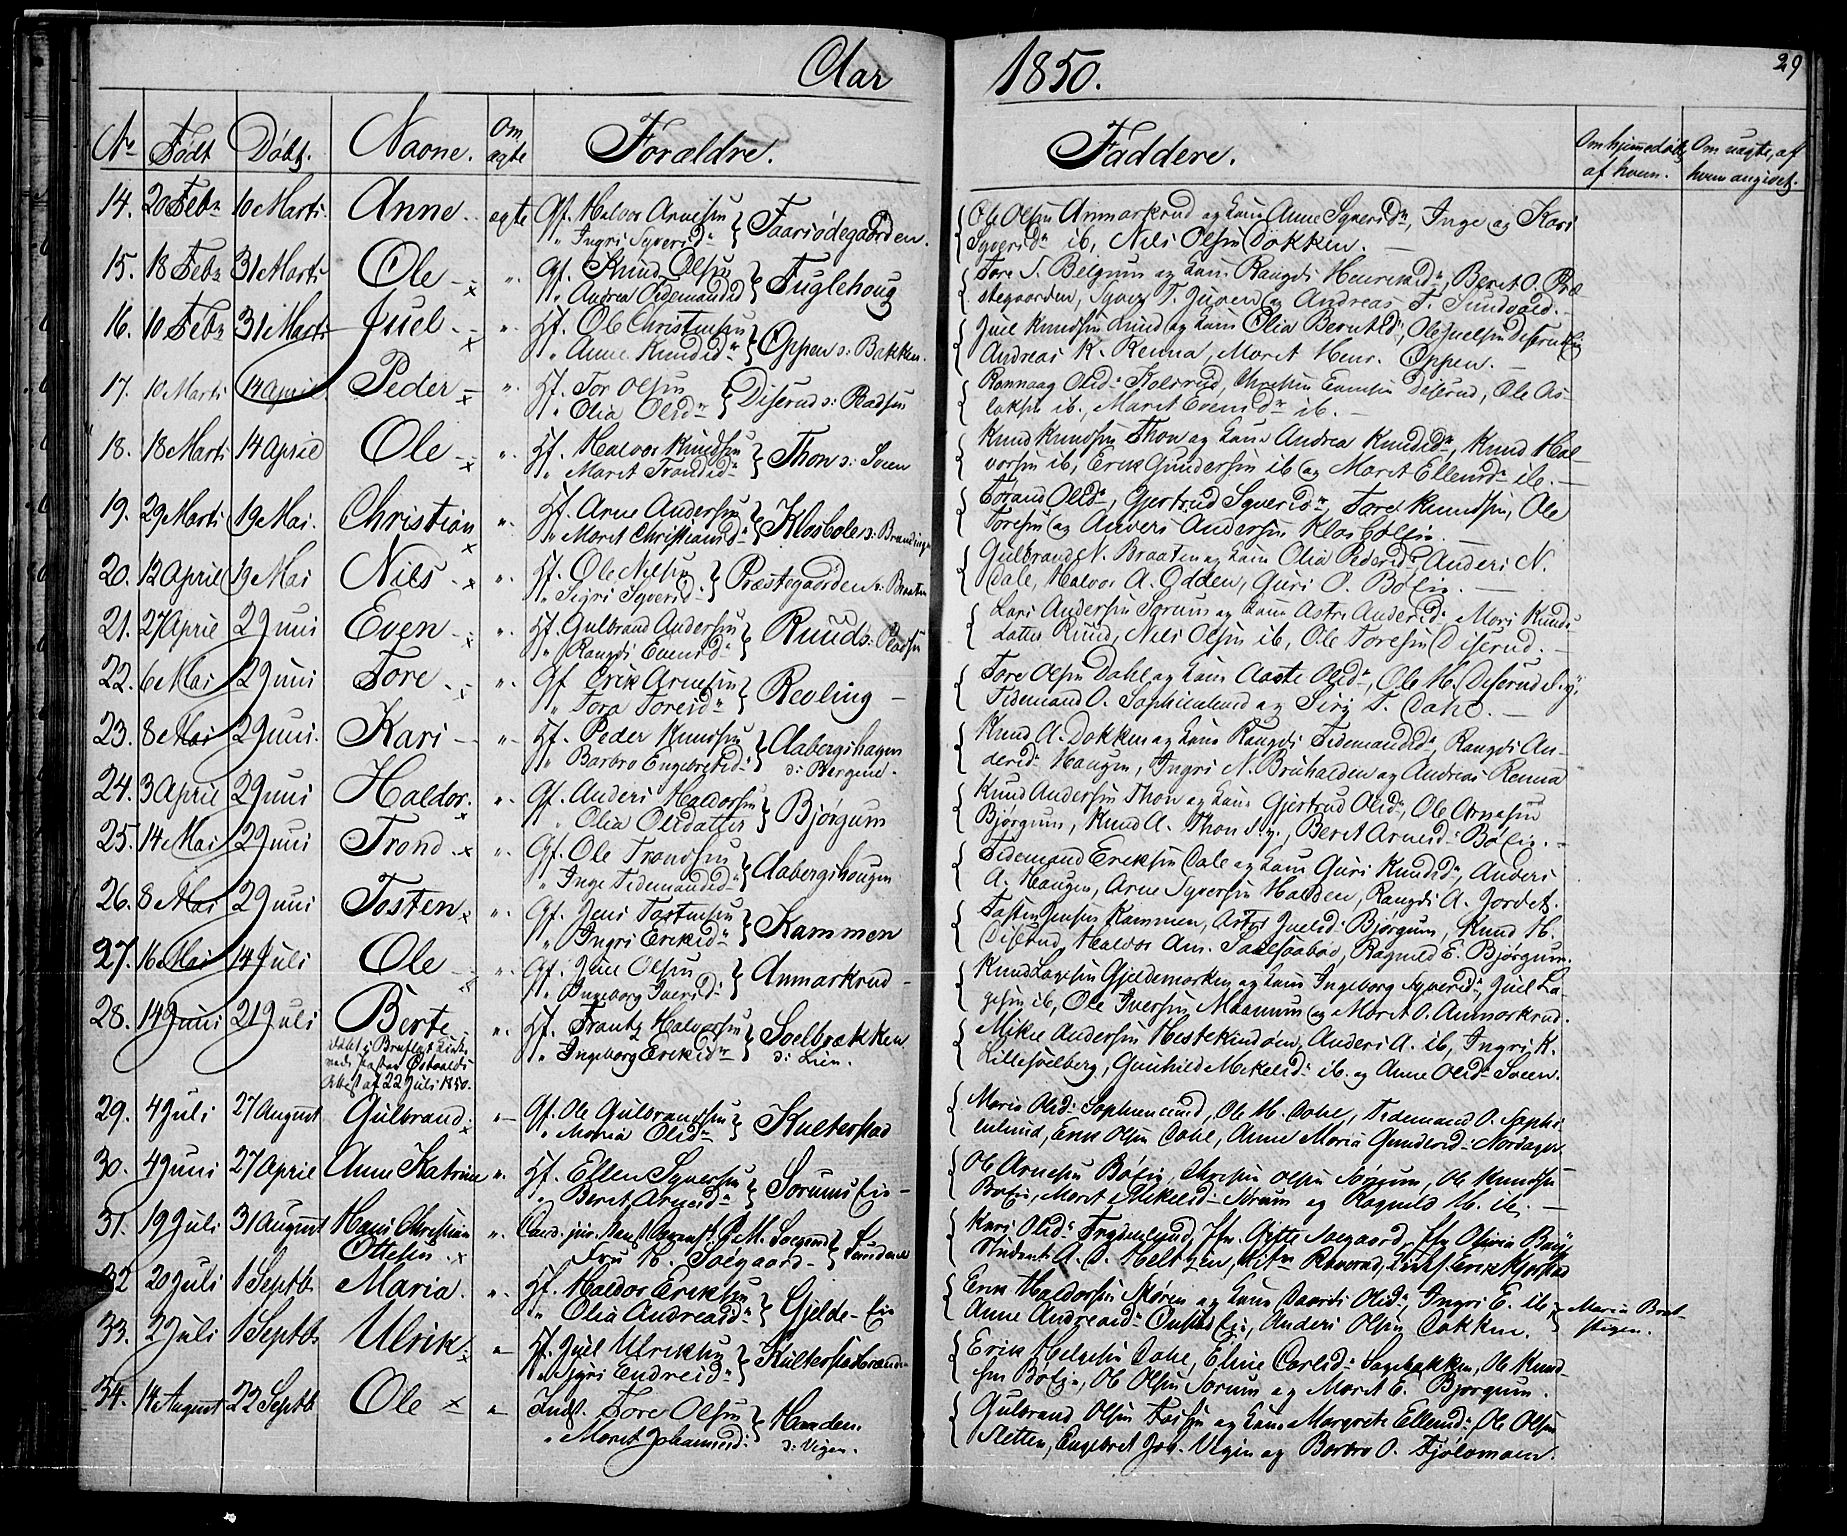 Aar 1850. 29
No Födt Döbt. Navne. Om ægte Forældre. Faddere. Om hjemmedöbt, af hvem. Om uægte, af hvem angivet.
14. 20 Febr 10 Marts Anne ægte Gf. Halvor Arnesen Ingri Syversdr } Faarödegaarden. { Ole Olsen Anmarkrud og kone Anne Syversdr, Inge og Kari
Syversdr ib, Nils Olsen Dokken.
15. 18 Febr 31 Marts Ole " Gf. Knud Olsen Andrea Tidemandsd } Fuglehoug { Tore S. Belgum og kone Rangdi Henriksdr, Berit O. Præ
stegaarden, Syver T. Juven og Andreas T. Sundvold.
16. 10 Febr 31 Marts Juel " Hf. Ole Christensen Anne Knudsdr } Oppen s: Bakken. { Juel Knudsen Ruud og kone Olia Berntsdr, Ole Juelsen Diserudeie
Andreas K. Renna, Marit Henr. Oppen.
17. 10 Marts 14 April Peder " Hf. Tor Olsen Olia Olsdr } Diserud s: Pladsen { Rannaug Olsdr Kolsrud, Christen Evensen Diserud, Ole As-
laksen ib, Marit Evensdr ib.
18. 18 Marts 14 April Ole " Hf. Halvor Knudsen Marit Trondsdr } Thon s: Sveen { Knud Knudsen Thon og kone Andrea Knudsdr, Knud Hal-
vorsen ib, Erik Gundersen ib og Marit Ellensdr ib.
19. 29 Marts 19 Mai. Christian " Hf. Arne Andersen Marit Christiansdr } Klosböle s: Brændingen { Torand Olsdr, Gjertrud Syversdr, Tore Knudsen, Ole
Toresen og Anders Andersen Klosböleie.
20. 12 April 19 Mai Nils " Hf. Ole Nilsen Sigri Syversdr } Præstegaarden s: Braaten { Gulbrand N. Braaten og kone Olia Pedersdr, Anders N.
Dale, Halvor A. Odden, Guri O. Böeie.
21. 27 April 2 Juni Even " Hf. Gulbrand Andersen Rangdi Evensdr } Ruud s: Pladsen { Lars Andersen Sorum og kone Astri Andersdr, Mari Knuds
datter Ruud, Nils Olsen ib, Ole Toresen Diserud.
22. 6 Mai 2 Juni Tore " Gf Erik Arnesen Tora Toresdr } Revling { Tore Olsen Dahl og kone Aaste Olsdr, Ole H. Diserud d.y.
Tidemand O. Sophienlund og Siri T. Dahl.
23. 8 Mai 2 Juni. Kari " Hf. Peder Knudsen Barbro Engebretsd } Aabergshagen s: Bergene. { Knud A. Dokken og kone Rangdi Tidemandsdr, Rangdi An-
dersdr Haugen, Ingri N. Bruhalden og Andreas Renna
24. 3 April 2 Juni Haldor. " Gf. Anders Haldorsen Olia Olsdatter } Bjørgum { Knud Andersen Thon og kone Gjertrud Olsdr, Ole Arnesen
Bjørgum, Knud A. Thon d.y., Berit Arnesdr Böeie.
25. 14 Mai 2 Juni Trond " Gf. Ole Trondsen Inge Tidemandsd } Aabergshougen { Tidemand Eriksen Dale og kone Guri Knudsdr, Anders
A. Haugen, Arne Syversen Halden, Rangdi A. Jordet.
26. 8 Mai 2 Juni Tosten " Gf. Jens Tostensen Ingri Eriksdr } Kammen { Tosten Jensen Kammen, Astri Juelsdr Bjørgum, Knud H.
Diserud, Halvor Am. , Ragnild E. Bjørgum.
27. 16 Mai 14 Juli Ole " Gf. Juel Olsen Ingeborg Iversd } Anmarkrud { Knud Lagesen Gjeldemarken og kone Ingeborg Syversdr, Juel La-
gesen ib, Ole Iversen Maanum og Marit O. Anmarkrud.
28. 14 Juni 21 Juli Berte " Hf. Frantz Halvorsen Ingeborg Eriksdr } Soelbrækken s: Lien. { Mikel Andersen Hestekindøen, Anders A. ib, Ingri K.
Döbt i Bruflat Kirke med Pastor Östvolds Attest af 22 Juli 1850. Lillesvelberg, Gunhild Mikelsdr ib. og Anne Olsdr Sveen.
29. 4 Juli 27 August Gulbrand " Gf. Ole Gulbrandsen Maria Olsdr } Kulterstad { Maria Olsdr Sophienlund, Ole H. Dahl, Tidemand O. Sophi
enlund, Erik Olsen Dahl, Anne Maria Gundersd Nordagen
30. 4 Juni 27 April Anne Katrine " Hf. Ellen Syversen Berit Arnesdr } Sorums Eie { Ole Arnesen Böeie, Christen Olsen Sorum, Ole Knudsen
Böeie, Marit Mikelsdr Strum og Ragnild H. ib.
31. 19 Juli 31 August Hans Christian Ottesen " Cand. jur. Soegaard Fru H. Soegaard } Sundene { Kari Olsdr Frydenlund, Jfr. Gitte Soegaard, Jfr Olivia Bay,
Student A. O. Heltzen, Ritm Ramrod, Lieut. Erik Kjerstad
32 20 Juli 1 Septb. Maria. " Hf. Haldor Eriksen Olia Andreasdr } Gjelde-Eie { Erik Haldorsen Mören og kone Taardi Olsdr, Ingri E. ib, } Maria Brat-
Anne Andreasdr Eie, Anders Olsen Dokken. stigen.
33. 2 Juli 1 Septb. Ulrik " Hf. Juel Ulriksen Sigri Endresdr } Kulterstadbrænden { Erik Helgesen Dahl, Eline Carlsdr Sagebakken, Ole Knud-
sen Böeie, Ole Olsen Sorum og Marit E. Bjørgum.
34. 14 August 22 Septb Ole " Inds. Tore Olsen Marit Johannesd. } Hamden s: Vigen. { Gulbrand Olsen Fossen og kone Margrete Ellensdr, Ole Olsen
Sletten, Engebret Joh. Vigen og Barbro O. Fjøløsmoen.